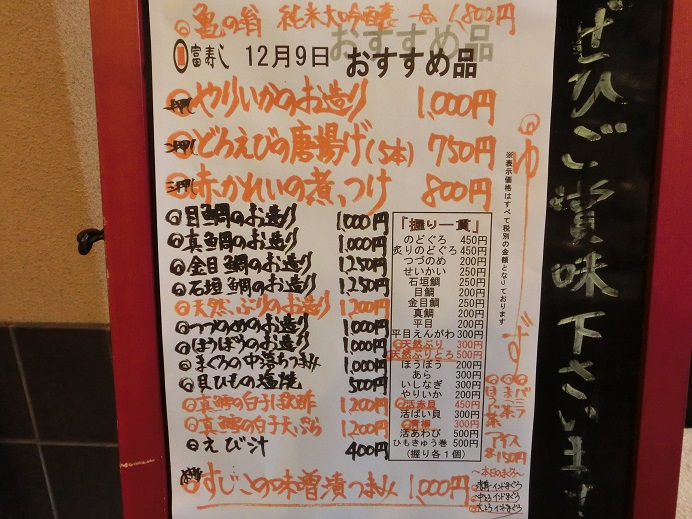 亀の翁 純米大吟醸 一合 1,800円
富寿し 12月9日 おすすめ品
一押し やりいかのお造り 1,000円
二押し どろえびの唐揚げ(5本) 750円
三押し 赤かれいの煮つけ 800円
目鯛のお造り 1,000円
真鯛のお造り 1,000円
金目鯛のお造り 1,250円
石垣鯛のお造り 1,250円
天然ぶりのお造り 1,200円
つづのめのお造り 1,000円
ほうぼうのお造り 1,000円
まぐろの中落ちつまみ 1,000円
貝ひもの塩焼 500円
真鱈の白子ぽん酢 1,200円
真鱈の白子天ぷら 1,200円
えび汁 400円
すじこの味噌漬つまみ 1,000円
「握り一貫」
のどぐろ 450円
炙りのどぐろ 450円
つづのめ 200円
せいかい 250円
石垣鯛 250円
目鯛 200円
金目鯛 250円
真鯛 200円
平目 200円
平目えんがわ 300円
天然ぶり 300円
天然ぶりとろ 500円
ほうぼう 200円
あら 300円
いしなぎ 300円
やりいか 200円
活赤貝 450円
活ばい貝 300円
青柳 300円
活あわび 500円
ひもきゅう巻 500円
(握り各1個)
※表示価格はすべて税別の金額となっております
ゆず
バニラ
まっ茶
アイス
各150円
〜本日のまぐろ〜
ぜひご賞味下さいませ